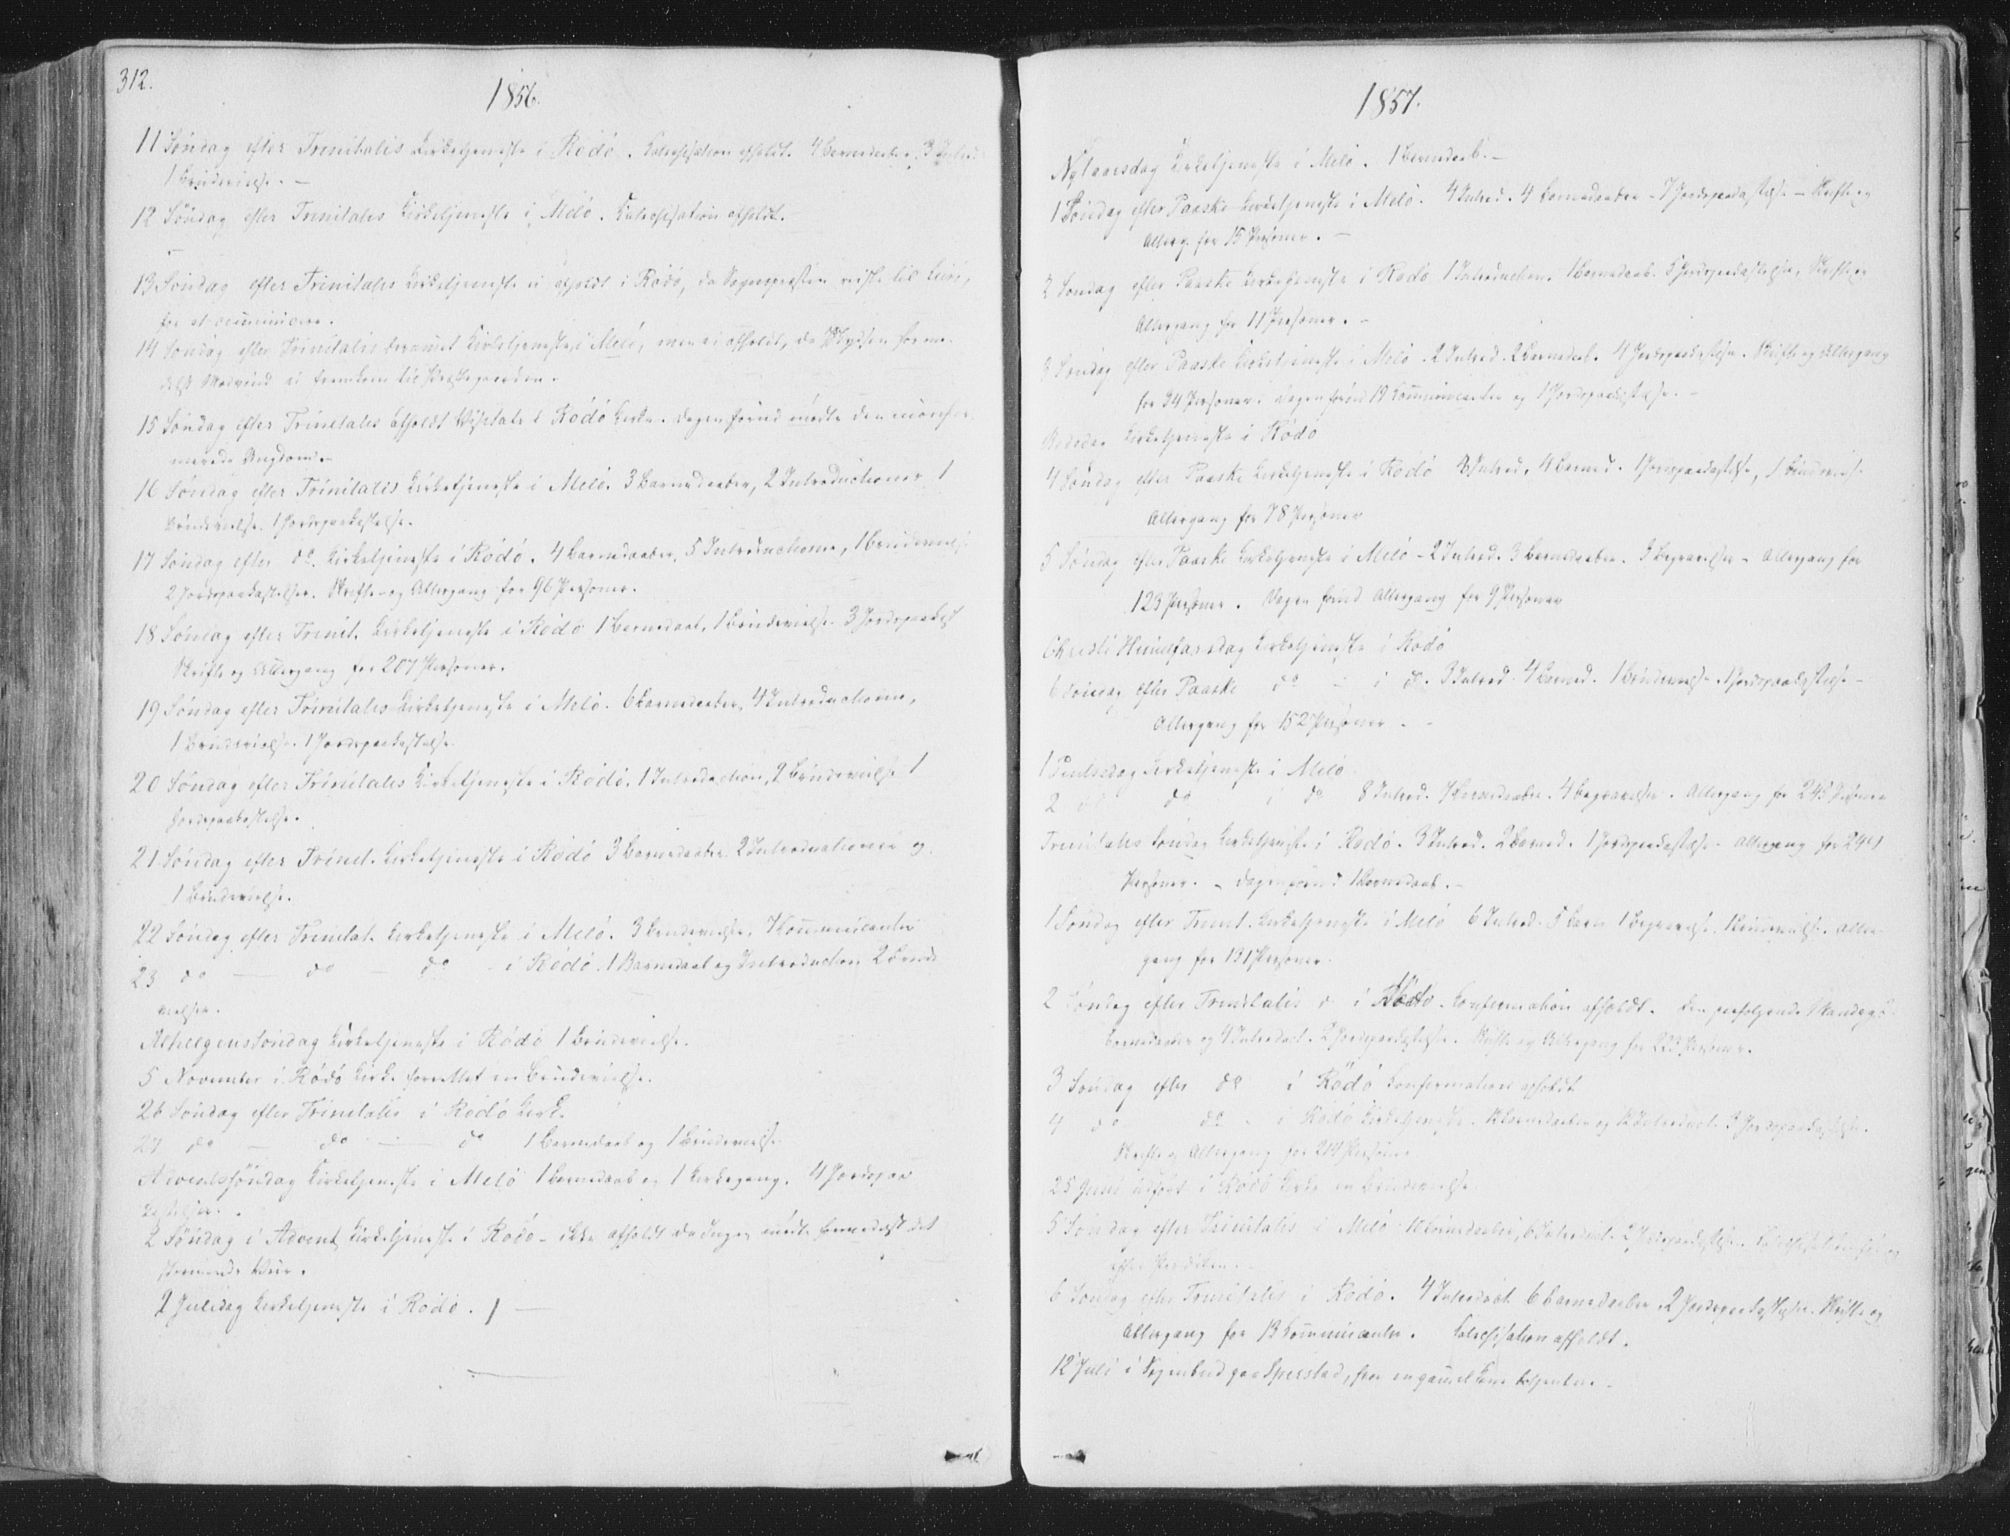 312.
1856.
11 Søndag efter Trinitatis Kirketjeneste i Rødø. Catechisation afholdt. 4 Barnedaab, 3 Introd.
1 Brudevielse. —
12 Søndag efter Trinitatis Kirketjeneste i Melø. Catechisation afholdt.
13 Søndag efter Trinitatis Kirketjeneste ei afholdt i Rødø, da Sognepresten reiste til
for at
14 Søndag efter Trinitatis berammet Kirketjeneste i Melø, men ei afholdt, da Skydsen forme-
delst Modvind ei fremkom til Præstegaarden.
15 Søndag efter Trinitatis afholdt Visitats i Rødø Kirke. Dagen forud mødte den
Ungdom. —
16 Søndag efter Trinitatis Kirketjeneste i Melø. 3 Barnedaaber, 2 Introductioner, 1
Brudevielse, 1 Jordspaakastelse.
17 Søndag efter do. Kirketjeneste i Rødø. 4 Barnedaaber, 5 Introductioner, 1 Brudevielse
2 Jordspaakastelser. Skrifte og Altergang for 96 Personer.
18 Søndag efter Trinit. Kirketjeneste i Rødø 1 Barnedaab, 1 Brudevielse 3 Jordspaakast
Skrifte og Altergang for 207 Personer.
19 Søndag efter Trinitatis Kirketjeneste i Melø. 6 Barnedaaber, 4 Introductioner,
1 Brudevielse. 1 Jordspaakastelse.
20 Søndag efter Trinitatis Kirketjeneste i Rødø. 1 Introduction, 2 Brudevielse 1
Jordspaakastelse.
21 Søndag efter Trinit. Kirketjeneste i Rødø 3 Barnedaaber 2 Introductioner og
1 Brudevielse.
22 Søndag efter Trinitat. Kirketjeneste i Melø. 3 Brudevielser, 7 Communicanter
23 do — do — do — i Rødø. 1 Barnedaab og Introduction 2 Brude
vielser.
Alhelgens Søndag Kirketjeneste i Rødø 1 Brudevielse.
5 November i Rødø Kirke forrettet en Brudevielse.
26 Søndag efter Trinitatis i Rødø Kirke
27 do — do — do 1 Barnedaab og 1 Brudevielse
Adventssøndag Kirketjeneste i Melø 1 Barnedaab og 1 Kirkegang. 4 Jordspaa
kastelser.
2 Søndag i Advent Kirketjeneste i Rødø — ikke afholdt da Ingen mødte formedelst det
stormende Veir.
2 Juledag Kirketjeneste i Rødø.
1857.
Nytaarsdag Kirketjeneste i Melø. 1 Barnedaab. —
1 Søndag efter Paaske Kirketjeneste i Melø. 4 Introd. 4 Barnedaaber — 7 Jordspaakastelse — Skrifte og
Alterg. for 15 Personer. —
2 Søndag efter Paaske Kirketjeneste i Rødø 1 Introduction. 1 Barnedaab. 5 Jordspaakastelser, Skrifte og
Altergang for 11 Personer. —
3 Søndag efter Paaske Kirketjeneste i Melø 2 Introd. 2 Barnedaab. 4 Jordspaakastelse. Skrifte og Altergang
for 34 Personer. Dagen forud 19 Communicanter og 1 Jordspaakastelse. —
Bededag Kirketjeneste i Rødø
4 Søndag efter Paaske Kirketjeneste i Rødø 3 Introd. 4 Barned. 1 Jordspaakastelse, 1 Brudevielse
Altergang for 78 Personer
5 Søndag efter Paaske Kirketjeneste i Melø — 2 Introd. 3 Barnedaaber. 3 Begravelser — Altergang for
123 Personer. Dagen forud Altergang for 9 Personer
Christi Himmelfarsdag Kirketjeneste i Rødø
6 Søndag efter Paaske do — i do. 3 Introd. 4 Barned. 1 Brudevielse 1 Jordspaakastelse —
Altergang for 152 Personer. —
1 Pintsedag Kirketjeneste i Melø
2 do do i do 8 Introd. 7 Barnedaaber. 4 Begravelser. Altergang for 243 Personer
Trinitatis Søndag Kirketjeneste i Rødø. 3 Introd. 2 Barned. 1 Jordspaakastelse — Altergang for 291
Personer. — Dagen forud 1 Barnedaab. —
1 Søndag efter Trinit. Kirketjeneste i Melø 6 Introd. 5 Barn 1 Begravelse. 1 Brudevielse. Alter-
gang for 131 Personer.
2 Søndag efter Trinitatis i Rødø. Confirmation afholdt. Den paafølgende Mandag
Barnedaaber og 4 Introduct. 2 Jordspaakastelse. Skrifte og Altergang for 220 Personer.
3 Søndag efter do i Rødø Confirmation afholdt
4 do do — i Rødø Kirketjeneste. Barnedaaber og Introduct. 3 Jordspaakastelse.
Skrifte og Altergang for 214 Personer
25 Juni udført i Rødø Kirke en Brudevielse.
5 Søndag efter Trinitatis i Melø Barnedaaber, 6 Introduct. 2 Jordspaakastelse.
efter Prædiken.
6 Søndag efter Trinitatis i Rødø. 4 Introduct. 6 Barnedaaber, 2 Jordspaakastelse. Skrifte og
Altergang for 13 Communicanter. Catechisation afholdt.
12 Juli i Sognebud paa Sperstad, hvor en gammel Kone betjentes. —